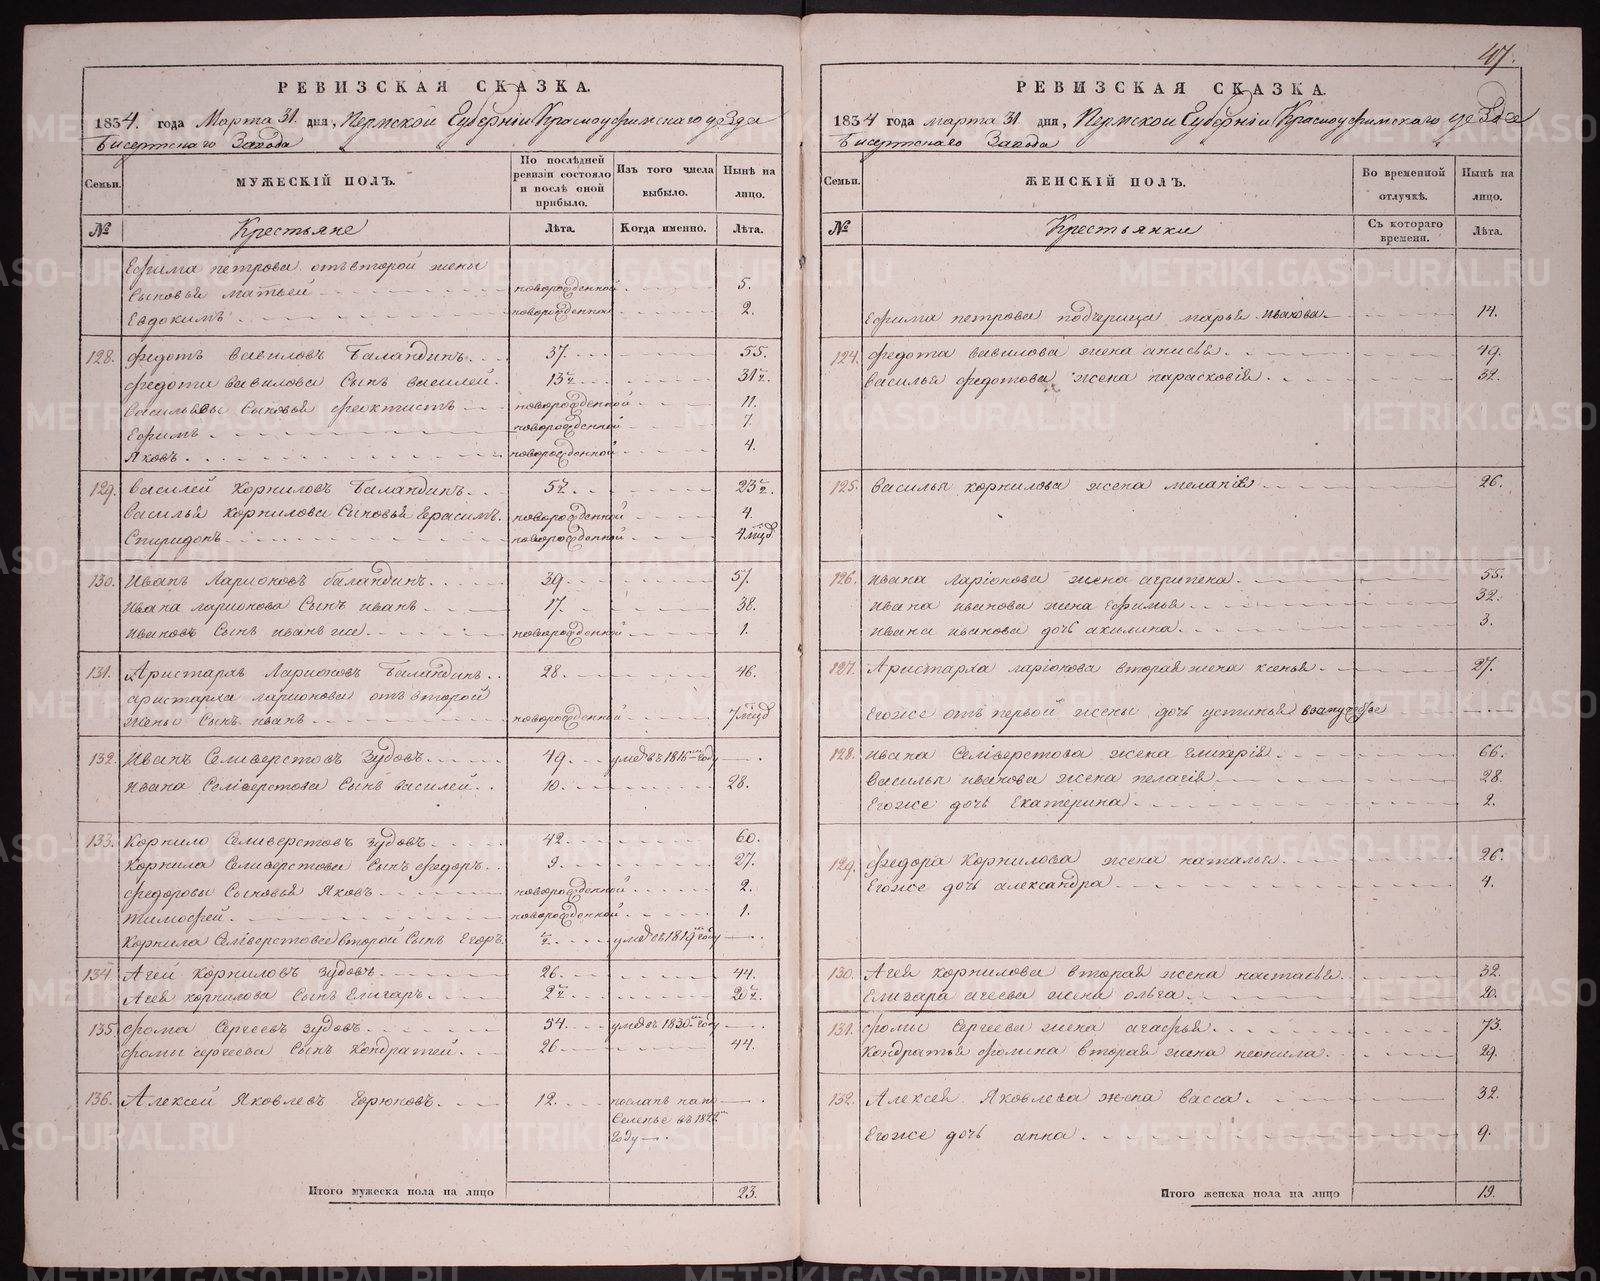 47.
РЕВИЗСКАЯ СКАЗКА.
1834. года Марта 31. дня, Пермской Губерніи Красноуфимскаго уезда
Бисертскаго Завода
Семьи. МУЖЕСКІЙ ПОЛЪ. По послѣдней ревизіи состояло и послѣ оной прибыло. Изъ того числа выбыло. Нынѣ на лицо.
№ Крестьяне Лѣта. Когда именно. Лѣта.
Ефима петрова отъ второй жены
Сыновья матвей новорожденной 5.
Евдокимъ новорожденной 2.
128. федотъ вавиловъ Баландинъ. 37. 55.
федота вавилова Сынъ василей. 13½ 31½.
васильевы Сыновья феоктистъ новорожденной 11.
Ефимъ новорожденной 7.
Яковъ. новорожденной 4.
129. василей корниловъ Баландинъ. 5½. 23½.
василья корнилова Сыновья Герасимъ. новорожденной 4.
Спиридонъ. новорожденной 4 мцд
130. Иванъ Ларионовъ баландинъ. 39. 57.
ивана ларионова Сынъ иванъ. 17. 38.
ивановъ Сынъ иванъ же. новорожденной 1.
131. Аристархъ Ларионовъ Баландинъ. 28. 46.
аристарха ларионова отъ второй
жены Сынъ иванъ новорожденной 7 мцд
132. Иванъ Селиверстовъ Зудовъ. 49. умеръ въ 1816 году
ивана Селіверстова Сынъ василей. 10. 28.
133. Корнило Селиверстовъ зудовъ. 42. 60.
Корнила Селиверстова Сынъ федоръ. 9. 27.
федоровы Сыновья Яковъ новорожденной 2.
тимофей. новорожденной 1.
Корнила Селіверстова второй Сынъ Егоръ. ½. умеръ 1819 году
134. Агей корниловъ зудовъ. 26. 44.
Агея корнилова Сынъ Елизаръ. 2½. 20½.
135. фома Сергеевъ зудовъ. 54. умеръ 1830 году
фомы сергеева Сынъ Кондратей. 26. 44.
136. Алексей Яковлевъ 12. посланъ на по
Селенье въ 1822
году
Итого мужеска пола на лицо 23.
РЕВИЗСКАЯ СКАЗКА.
1834 года марта 31. дня, Пермской Губерніи Красноуфимскаго уезда
Бисертскаго Завода
Семьи. ЖЕНСКІЙ ПОЛЪ. Во временной отлучкѣ. Нынѣ на лицо.
№ Крестьянки Съ котораго времени. Лѣта.
Ефима петрова подчерица марья ивакова 14.
124. федота вавилова жена анисья. 49.
василья федотова жена парасковія. 32.
125. василья корнилова жена меланія 26.
126. ивана ларіонова жена агрипена. 55.
ивана иванова жена Ефимья 32.
ивана иванова дочь акилина. 3.
127. Аристарха ларіонова вторая жена ксенья 27.
Егоже отъ первой жены дочь устинья взамужестве
128. ивана Селіверстова жена гликерія 66.
василья иванова жена пелагія 28.
Егоже дочь Екатерина 2.
129. федора Корнилова жена наталья 26.
Егоже дочь александра 4.
130. Агея корнилова вторая жена настасья 32.
Елизара агеева жена ольга 20.
131. фомы Сергеева жена агафья. 73.
Кондратья фомина вторая жена неонила. 29.
132. Алексея Яковлева жена васса. 32.
Егоже дочь анна. 9.
Итого женска пола на лицо 19.
METRIKI.GASO-URAL.RU